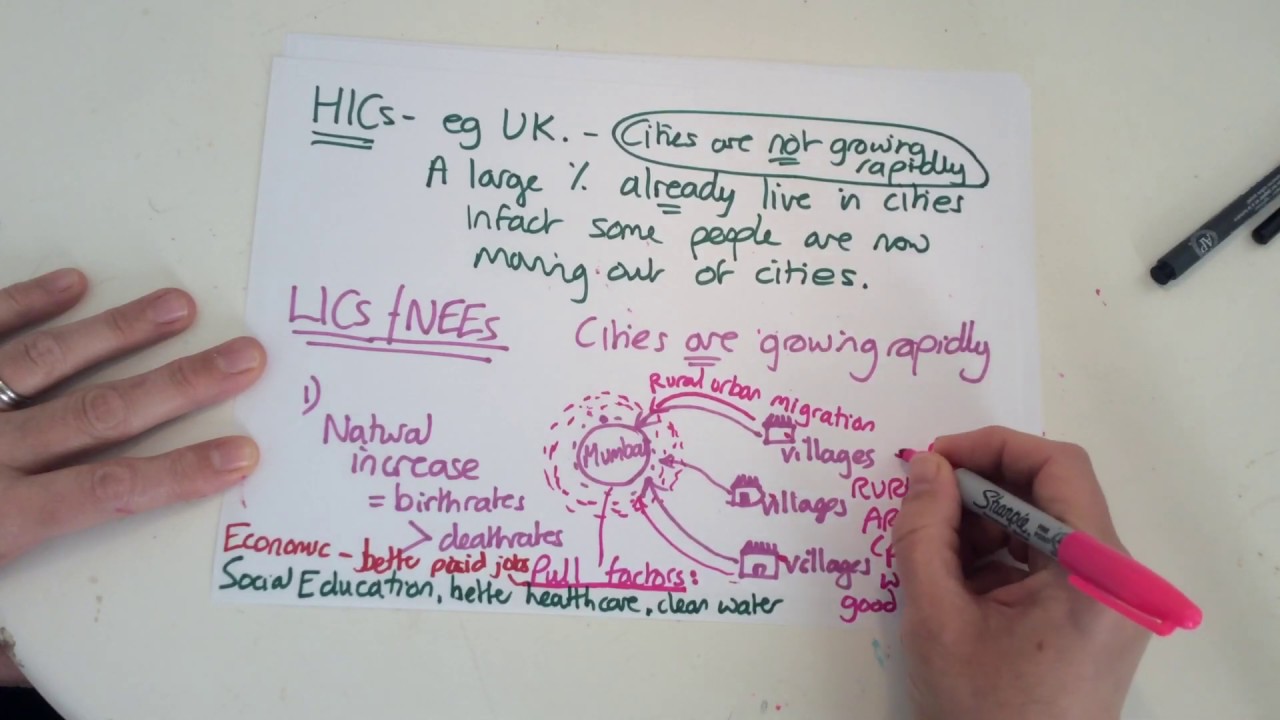 HICs - eg UK. - Cities are not growing rapidly
A large % already live in cities
Infact some people are now
moving out of cities.
LICs / NEEs
Cities are growing rapidly
1)
Natural
increase
= birthrates
> deathrates
Rural urban migration
Mumbai
villages
villages
villages
Pull factors:
Economic - better paid jobs
Social Education, better healthcare, clean water
good
Sharpie
AP